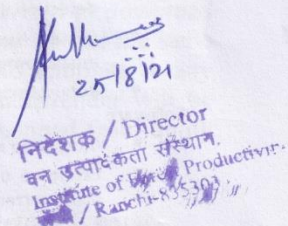 25/8/21
निदेशक / Director
वन उत्पादकता संस्थान.
Institute of Forest Productivit
/ Ranchi-835303